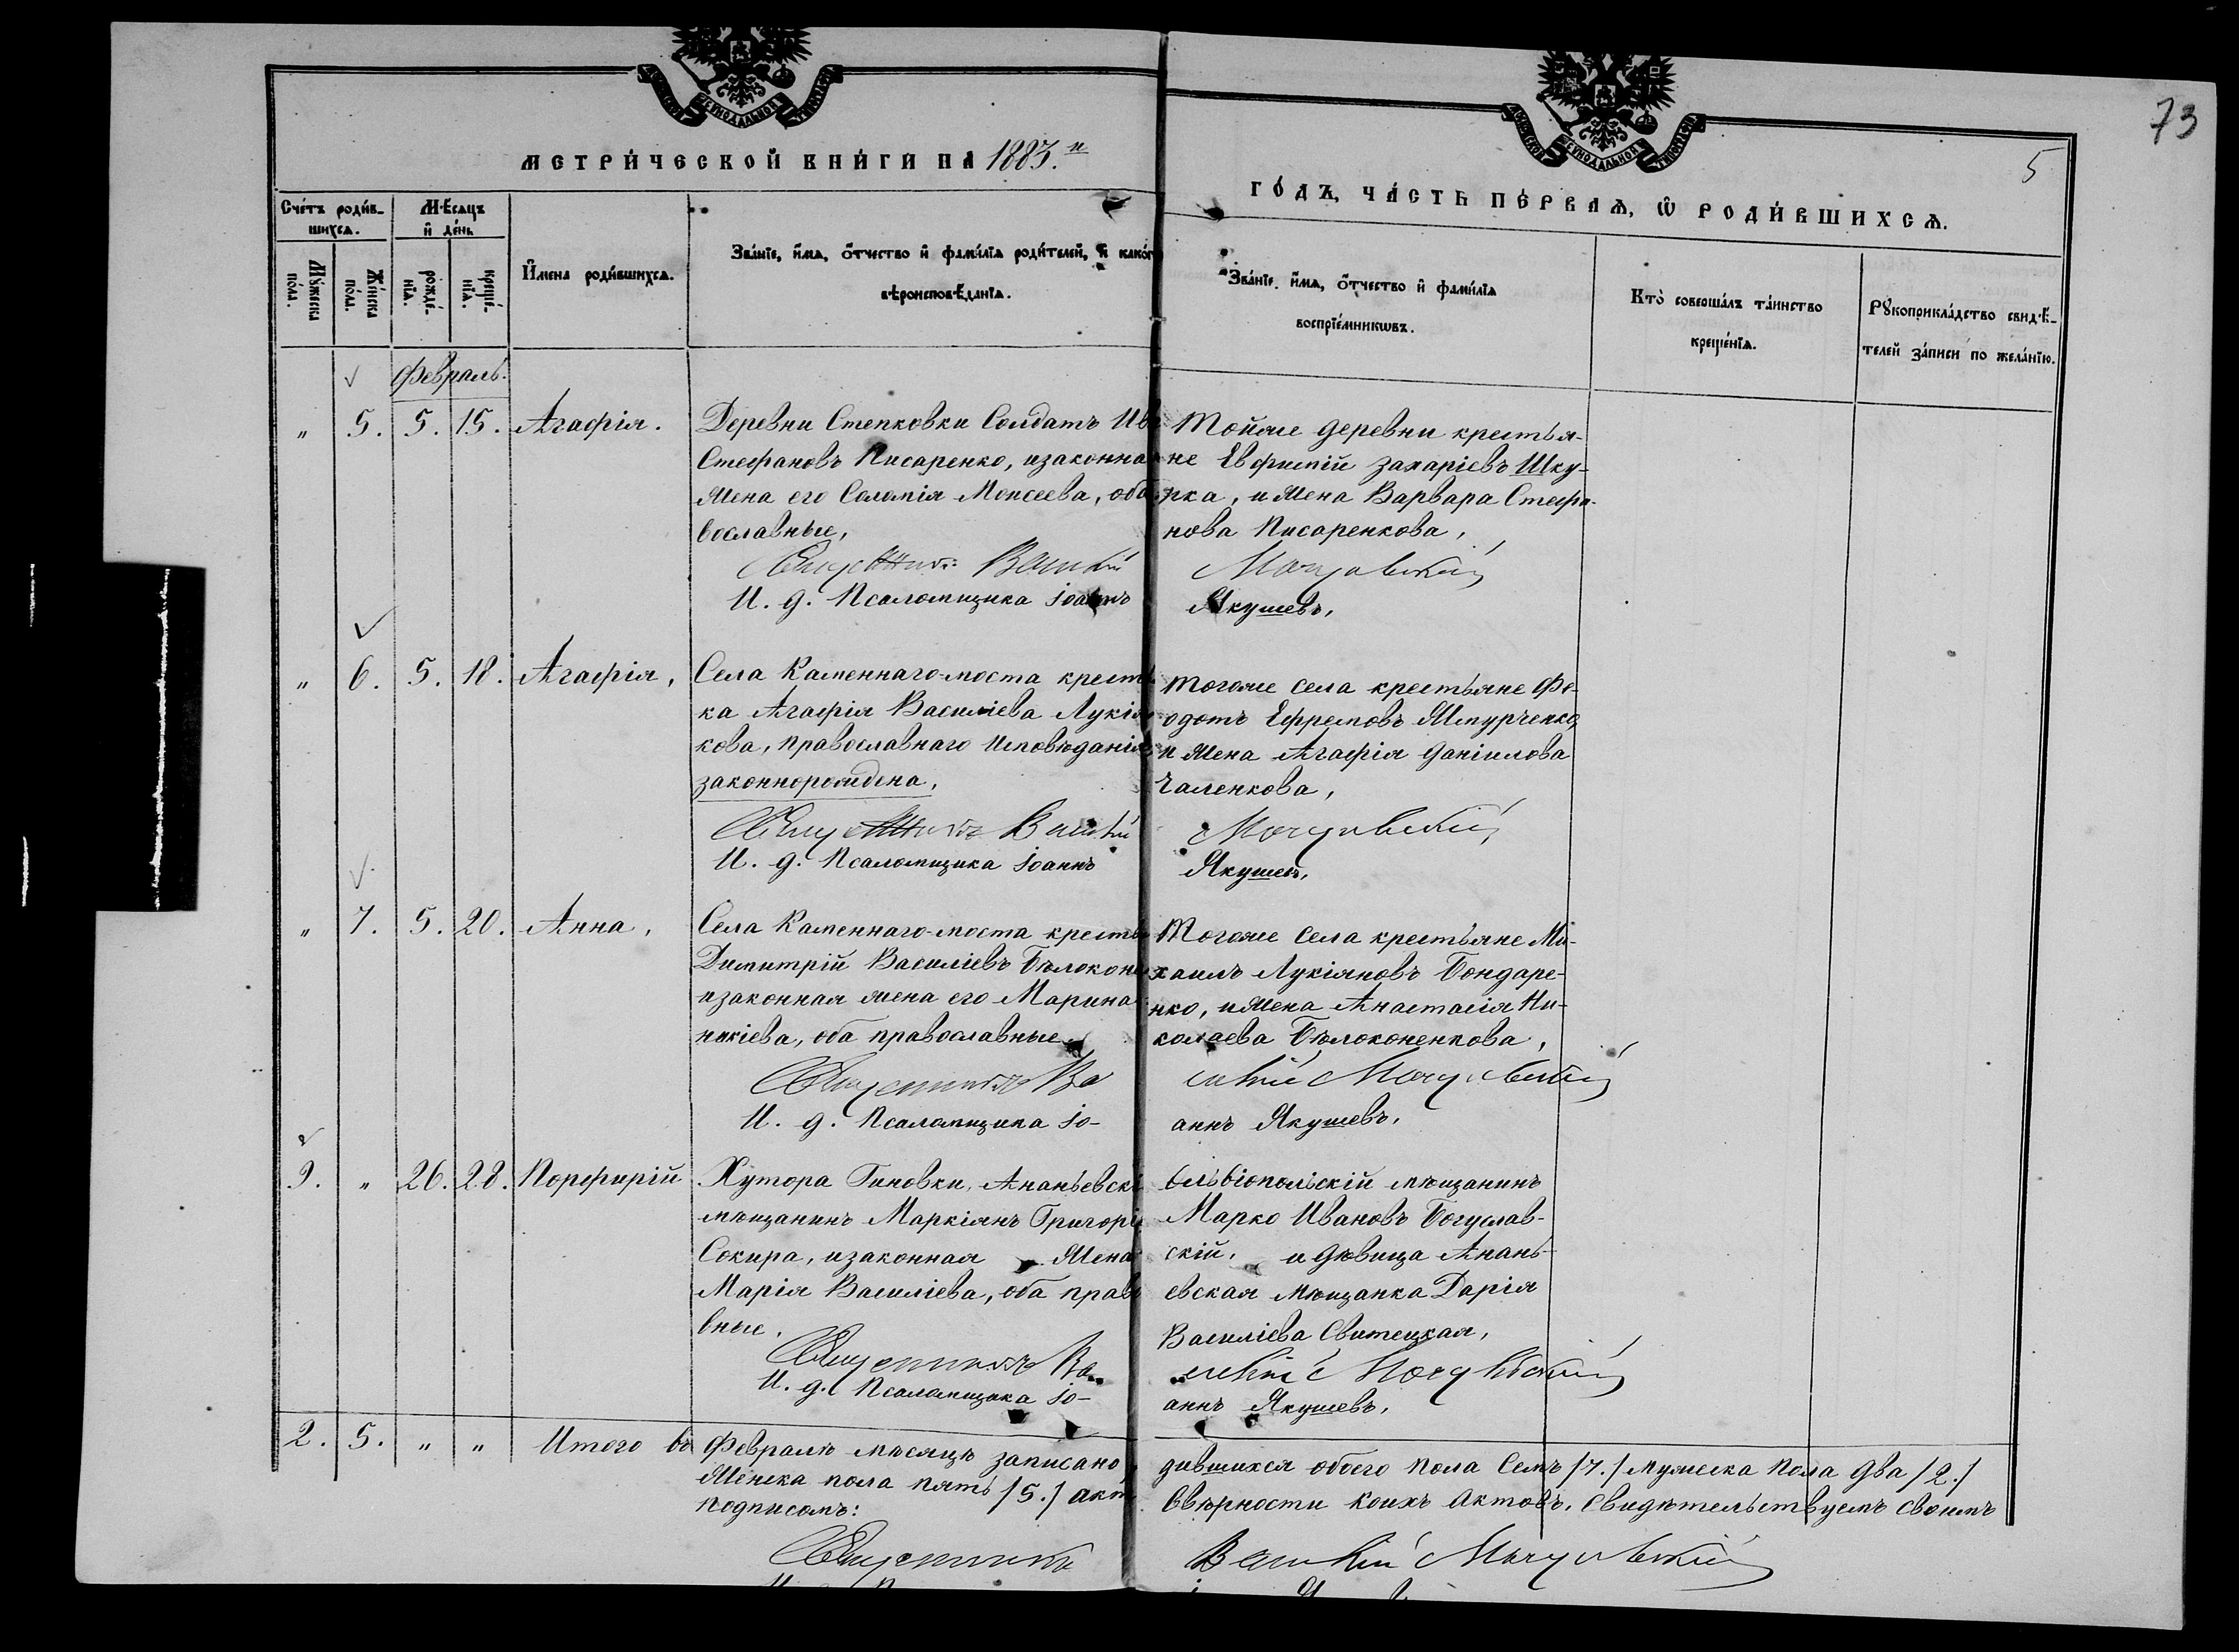 73
5
МЕТРИ́ЧЕСКОЙ КНИ́ГИ НА 1883.й
ГО́ДЪ, ЧА́СТЬ ПЕ́РВАЯ, Ѡ҆ РОДИ́ВШИХСЯ.
Сче́тъ роди́в-
шихся.
Мѣ́сяцъ
и҆ де́нь
Мꙋ́жеска
по́ла.
Же́нска
по́ла.
рожде́-
нїя.
креще́-
нїя.
И҆мена роди́вшихся.
Зва́нїе, и҆́мя, ѻ҆́тчество и҆ фами́лїа роди́телей, и҆ како́г
вѣроисповѣ́данїя.
Зва́нїе, и҆́мя, ѻ҆́тчество и҆ фами́лїа
воспрїе́мникѡвъ.
Кто̀ соверша́лъ та́инство
креще́нїя.
Рꙋкоприкла́дство свидѣ́-
телей за́писи по жела́нїю.
Февраль.
" 5. 5. 15. Агафія.
Деревни Степковки Солдатъ Ив
Стефановъ Писаренко, изаконна
жена его Соломія Моисеева, оба
вославные,
Священникъ Василій
И. д. Псаломщика Іоаннъ
Тойже деревни крестья-
не Евфимій Захаріевъ Шку-
рка, и жена Варвара Стефа-
нова Писаренкова,
Якушевъ,
" 6. 5. 18. Агафія,
Села Каменнаго-моста крестья
ка Агафія Василіева Лукія
кова, православнаго исповѣданія
законнорождена,
Священникъ Василій
И. д. Псаломщика Іоаннъ
Тогоже села крестьяне Фе-
одотъ Ефремовъ
и жена Агафія Даніилова
Чаленкова,
Якушевъ,
" 7. 5. 20. Анна,
Села Каменнаго-моста крестья
Димитрій Василіевъ Бѣлокон
изаконная жена его Марина
никіева, оба православные
Священникъ Ва
И. д. Псаломщика Іо-
Тогоже села крестьяне Ми-
хаилъ Лукіяновъ Бондаре-
нко, ижена Анастасія Ни-
колаева Бѣлоконенкова,
силій
аннъ Якушевъ,
2. " 26. 28. Порфирій
Хутора Гиновки, Ананьевскі
мѣщанинъ Маркіянъ Григорі
Сокира, изаконная жена
Марія Василіева, оба право
вные,
Священникъ Ва
И. д. Псаломщика Іо-
Ольвіопольскій мѣщанинъ
Марко Ивановъ Богуслав-
скій, и дѣвица Анань-
евская мѣщанка Дарія
Василіева Свитецкая,
силій
аннъ Якушевъ,
2. 5. " " Итого въ Февралѣ мѣсяцѣ записано
женска пола пять /5./ акт
подписомъ:
дившихся обоего пола Семь /7./ мужеска пола два /2./
Ввѣрности коихъ Актовъ, Свидѣтельствуемъ своимъ
Священникъ
Василій